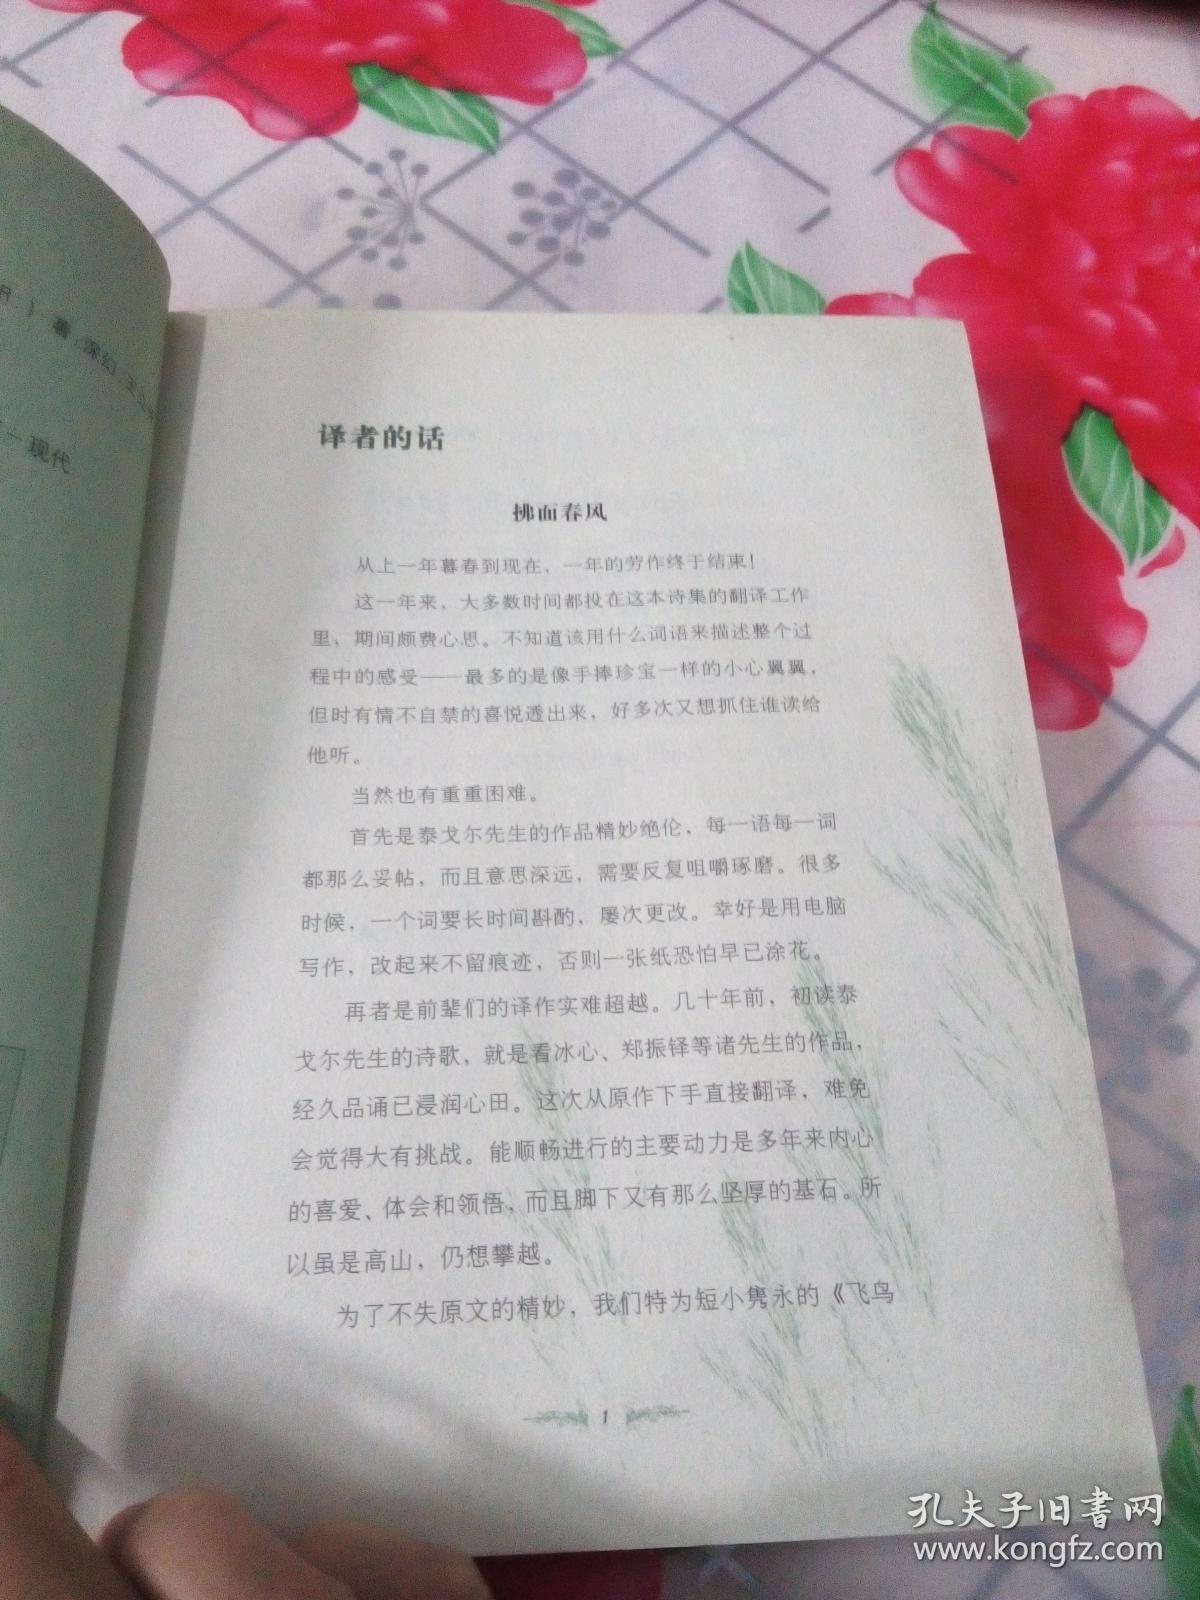 月.）著；深幻，王立
—现代
译者的话
拂面春风
从上一年暮春到现在，一年的劳作终于结束！
这一年来，大多数时间都投在这本诗集的翻译工作
里，期间颇费心思。不知道该用什么词语来描述整个过
程中的感受——最多的是像手捧珍宝一样的小心翼翼，
但时有情不自禁的喜悦透出来，好多次又想抓住谁读给
他听。
当然也有重重困难。
首先是泰戈尔先生的作品精妙绝伦，每一语每一词
都那么妥帖，而且意思深远，需要反复咀嚼琢磨。很多
时候，一个词要长时间斟酌，屡次更改。幸好是用电脑
写作，改起来不留痕迹，否则一张纸恐怕早已涂花。
再者是前辈们的译作实难超越。几十年前，初读泰
戈尔先生的诗歌，就是看冰心、郑振铎等诸先生的作品，
经久品诵已浸润心田。这次从原作下手直接翻译，难免
会觉得大有挑战。能顺畅进行的主要动力是多年来内心
的喜爱、体会和领悟，而且脚下又有那么坚厚的基石。所
以虽是高山，仍想攀越。
为了不失原文的精妙，我们特为短小隽永的《飞鸟
1
孔夫子旧书网
www.kongfz.com